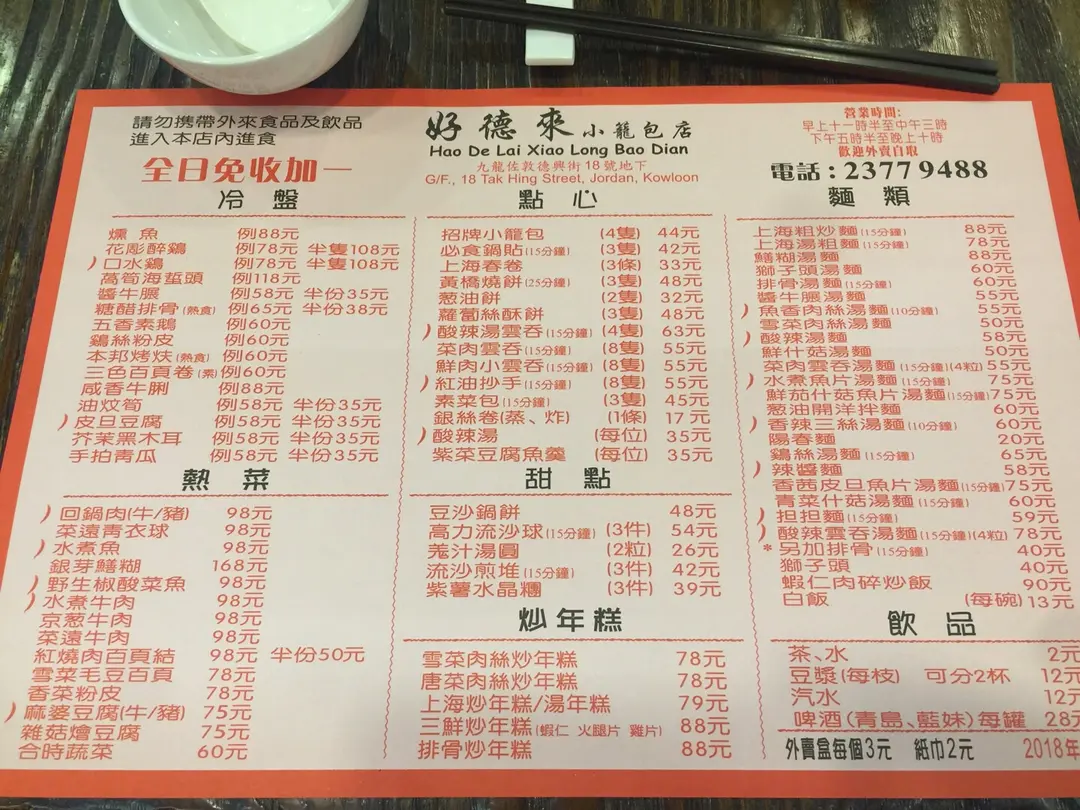 請勿携帶外來食品及飲品
進入本店內進食
全日免收加一
好德來小籠包店
Hao De Lai Xiao Long Bao Dian
九龍佐敦德興街18號地下
G/F., 18 Tak Hing Street, Jordan, Kowloon
營業時間:
早上十一時半至中午三時
下午五時半至晚上十時
歡迎外賣自取
電話:2377 9488
冷盤
燻魚 例88元
花彫醉鷄 例78元 半隻108元
)口水鷄 例78元 半隻108元
萵筍海蜇頭 例118元
醬牛𦟌 例58元 半份35元
糖醋排骨(熱食) 例65元 半份38元
五香素鵝 例60元
鷄絲粉皮 例60元
本邦烤麩(熱食) 例60元
三色百頁卷(素) 例60元
咸香牛脷 例88元
油炆筍 例58元 半份35元
)皮旦豆腐 例58元 半份35元
芥茉黑木耳 例58元 半份35元
手拍青瓜 例58元 半份35元
熱菜
)回鍋肉(牛/豬) 98元
菜遠靑衣球 98元
)水煮魚 98元
銀芽鱔糊 168元
)野生椒酸菜魚 98元
)水煮牛肉 98元
京葱牛肉 98元
菜遠牛肉 98元
紅燒肉百頁結 98元 半份50元
雪菜毛豆百頁 78元
香菜粉皮 78元
)麻婆豆腐(牛/豬) 75元
雜菇燴豆腐 75元
合時蔬菜 60元
點心
招牌小籠包 (4隻) 44元
必食鍋貼(15分鐘) (3隻) 42元
上海春卷 (3條) 33元
黃橋燒餅(25分鐘) (3隻) 48元
葱油餅 (2隻) 32元
蘿蔔絲酥餅 (3隻) 48元
)酸辣湯雲吞(15分鐘) (4隻) 63元
菜肉雲吞(15分鐘) (8隻) 55元
鮮肉小雲吞(15分鐘) (8隻) 55元
)紅油抄手(15分鐘) (8隻) 55元
素菜包(15分鐘) (3隻) 45元
銀絲卷(蒸、炸) (1條) 17元
)酸辣湯 (每位) 35元
紫菜豆腐魚羹 (每位) 35元
甜點
豆沙鍋餅 48元
高力流沙球(15分鐘) (3件) 54元
羗汁湯圓 (2粒) 26元
流沙煎堆(15分鐘) (3件) 42元
紫薯水晶糰 (3件) 39元
炒年糕
雪菜肉絲炒年糕 78元
唐菜肉絲炒年糕 78元
上海炒年糕/湯年糕 79元
三鮮炒年糕(蝦仁 火腿片 雞片) 88元
排骨炒年糕 88元
麵類
上海粗炒麵(15分鐘) 88元
上海湯粗麵(15分鐘) 78元
鱔糊湯麵 88元
獅子頭湯麵 60元
排骨湯麵(15分鐘) 60元
醬牛𦟌湯麵 55元
)魚香肉絲湯麵(10分鐘) 55元
雪菜肉絲湯麵 50元
)酸辣湯麵 58元
鮮什菇湯麵 50元
菜肉雲吞湯麵(15分鐘)(4粒) 55元
)水煮魚片湯麵(15分鐘) 75元
鮮茄什菇魚片湯麵(15分鐘) 75元
葱油開洋拌麵 60元
)香辣三絲湯麵(10分鐘) 60元
陽春麵 20元
鷄絲湯麵(15分鐘) 65元
)辣醬麵 58元
香茜皮旦魚片湯麵(15分鐘) 75元
青菜什菇湯麵(15分鐘) 60元
)担担麵(15分鐘) 59元
)酸辣雲吞湯麵(15分鐘)(4粒) 78元
*另加排骨(15分鐘) 40元
獅子頭 40元
蝦仁肉碎炒飯 90元
白飯 (每碗) 13元
飲品
茶、水 2元
豆漿(每枝) 可分2杯 12元
汽水 12元
啤酒(青島、藍妹)每罐 28元
外賣盒每個3元 紙巾2元 2018年